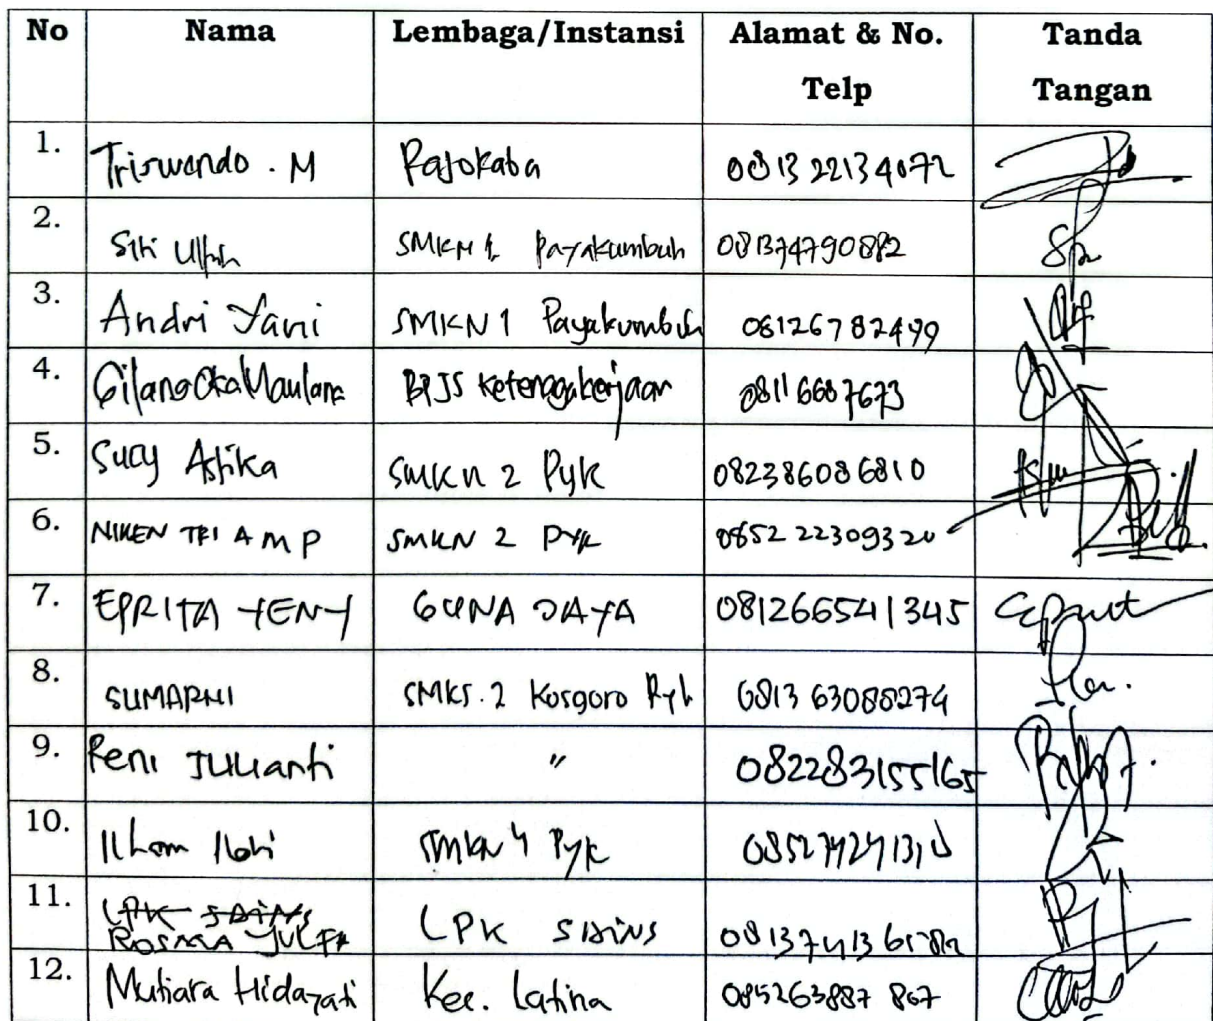 No Nama Lembaga/Instansi Alamat & No. Telp Tanda Tangan
1. Triswando . M Pasokaba 0813 22134072
2. Siti Ulfah SMKN 1 Payakumbuh 081374790882
3. Andri Yani SMKN 1 Payakumbuh 08126782499
4. Gilang Oka Maulana BPJS Ketenagakerjaan 08116687673
5. Sucy Astika SMKN 2 Pyk 082386086810
6. NIKEN TRI A M P SMKN 2 PYK 0852 22309320
7. EPRITA YENY GUNA DAYA 081266541345
8. SUMARNI SMKS. 2 Kosgoro Pyk 0813 63088274
9. Reni Julianti " 082283155165
10. Ilham SMKN 4 Pyk
11. LPK SAINS
ROSMA YULFA LPK SAINS
12. Mutiara Hidayati Kec. Latina 085263887 867